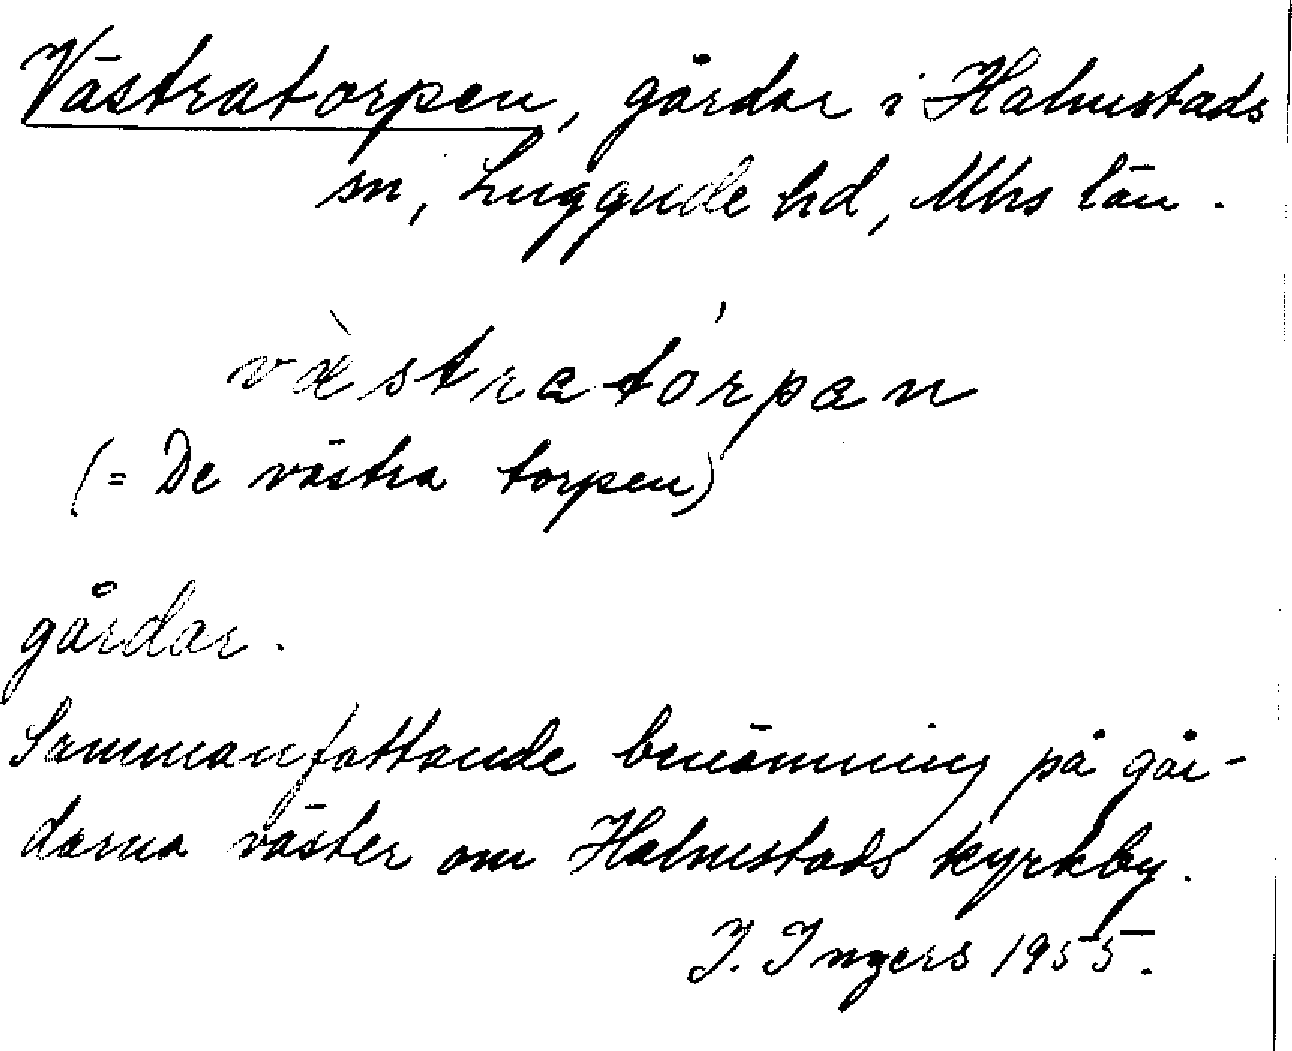 Västratorpen, gårdar i Halmstads
sn, Luggude hd, Mhs län.
væ̀stratórpan
(= De västra torpen)
gårdar.
Sammanfattande benämning på går-
darna väster om Halmstads kyrkby.
I. Ingers 1955.